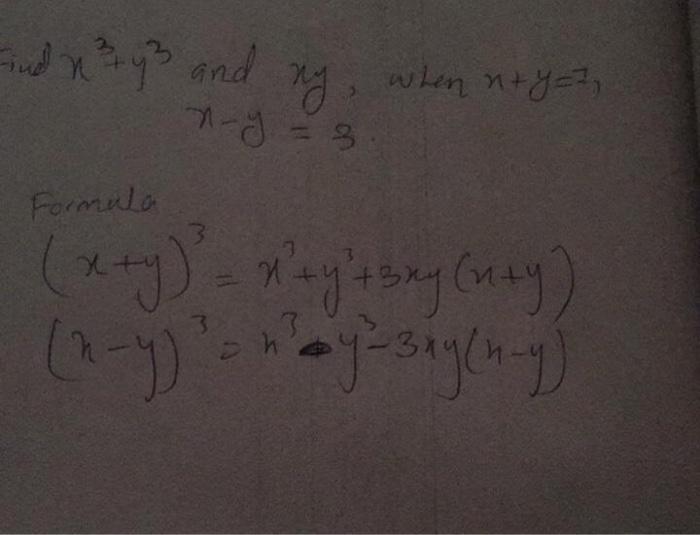 Find x³+y³ and xy, when x+y=7,
x-y = 3.
Formula
(x+y)³ = x³+y³+3xy(x+y)
(x-y)³ = x³-y³-3xy(x-y)